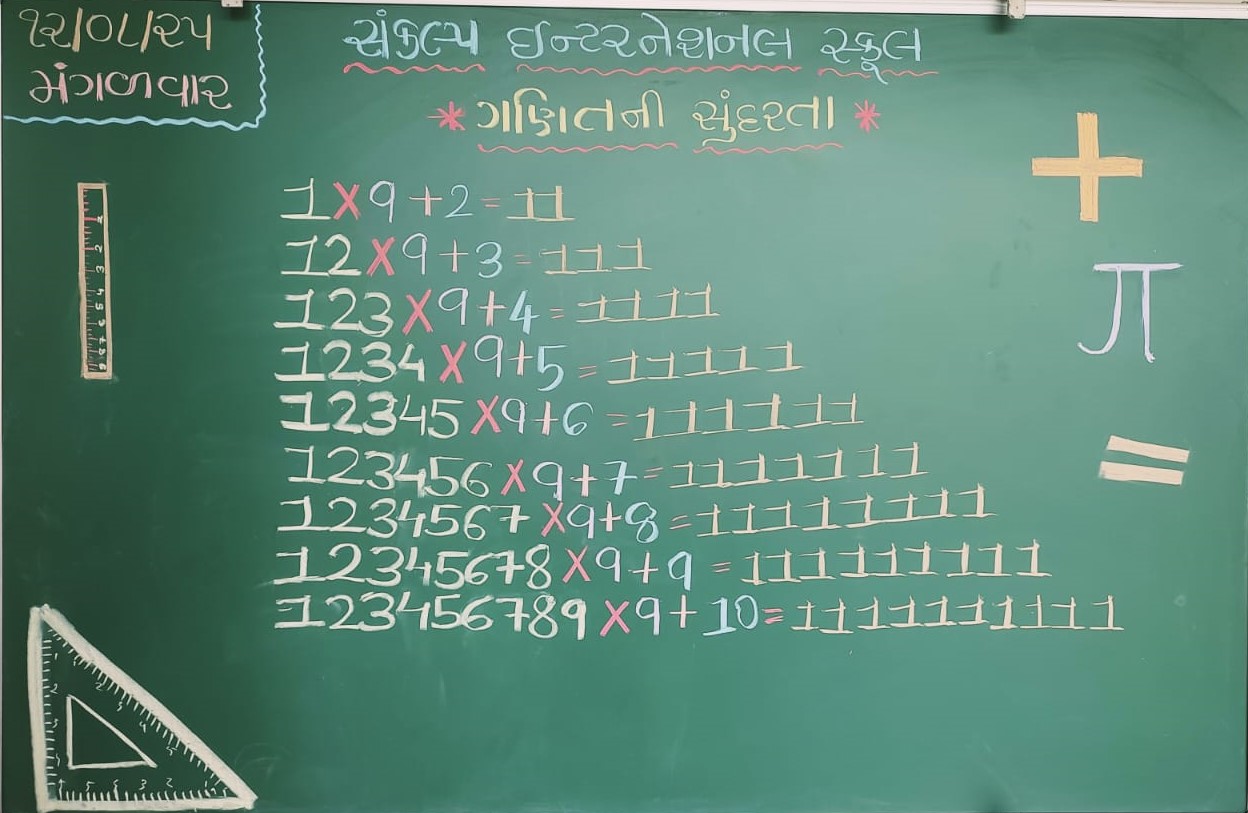 ૧૨/૦૮/૨૫
મંગળવાર
સંકલ્પ ઇન્ટરનેશનલ સ્કૂલ
* ગણિતની સુંદરતા *
1×9+2=11
12×9+3=111
123×9+4=1111
1234×9+5=11111
12345×9+6=111111
123456×9+7=1111111
1234567×9+8=11111111
12345678×9+9=111111111
123456789×9+10=1111111111
+
π
=